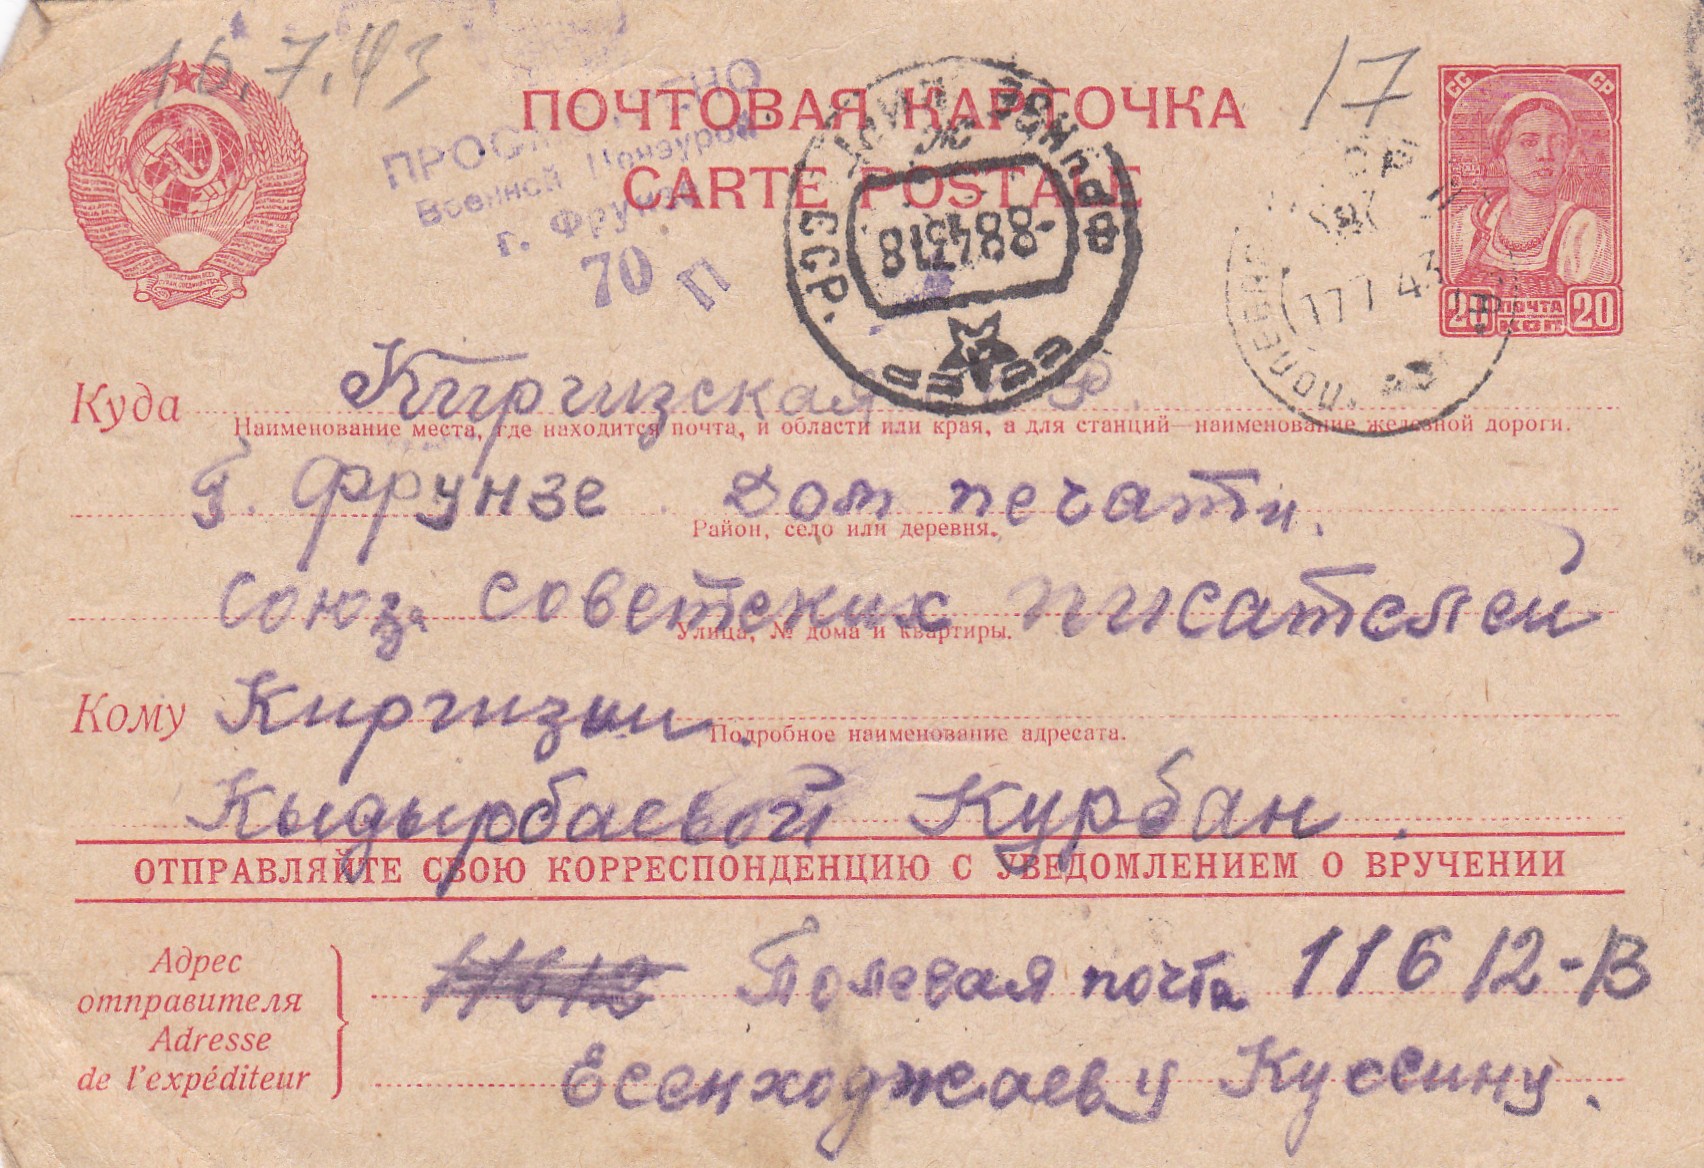 16.7.43
17
ПОЧТОВАЯ КАРТОЧКА
CARTE POSTALE
СС СР
20 ПОЧТА КОП 20
Военной Цензурой
г. Фрунзе
70 П
ФРУНЗЕ
ССР
-8 8 43 18
17 7 43
Куда Киргизская
Наименование места, где находится почта, и области или края, а для станций—наименование железной дороги.
г. Фрунзе. Дом печати.
Район, село или деревня.
Союз советских писателей
Улица, № дома и квартиры.
Кому Киргизии.
Подробное наименование адресата.
Кыдырбаевой Курбан.
ОТПРАВЛЯЙТЕ СВОЮ КОРРЕСПОНДЕНЦИЮ С УВЕДОМЛЕНИЕМ О ВРУЧЕНИИ
Адрес отправителя
Adresse de l'expéditeur
11612 Полевая почта 11612-В
Есенходжаеву Куссину.